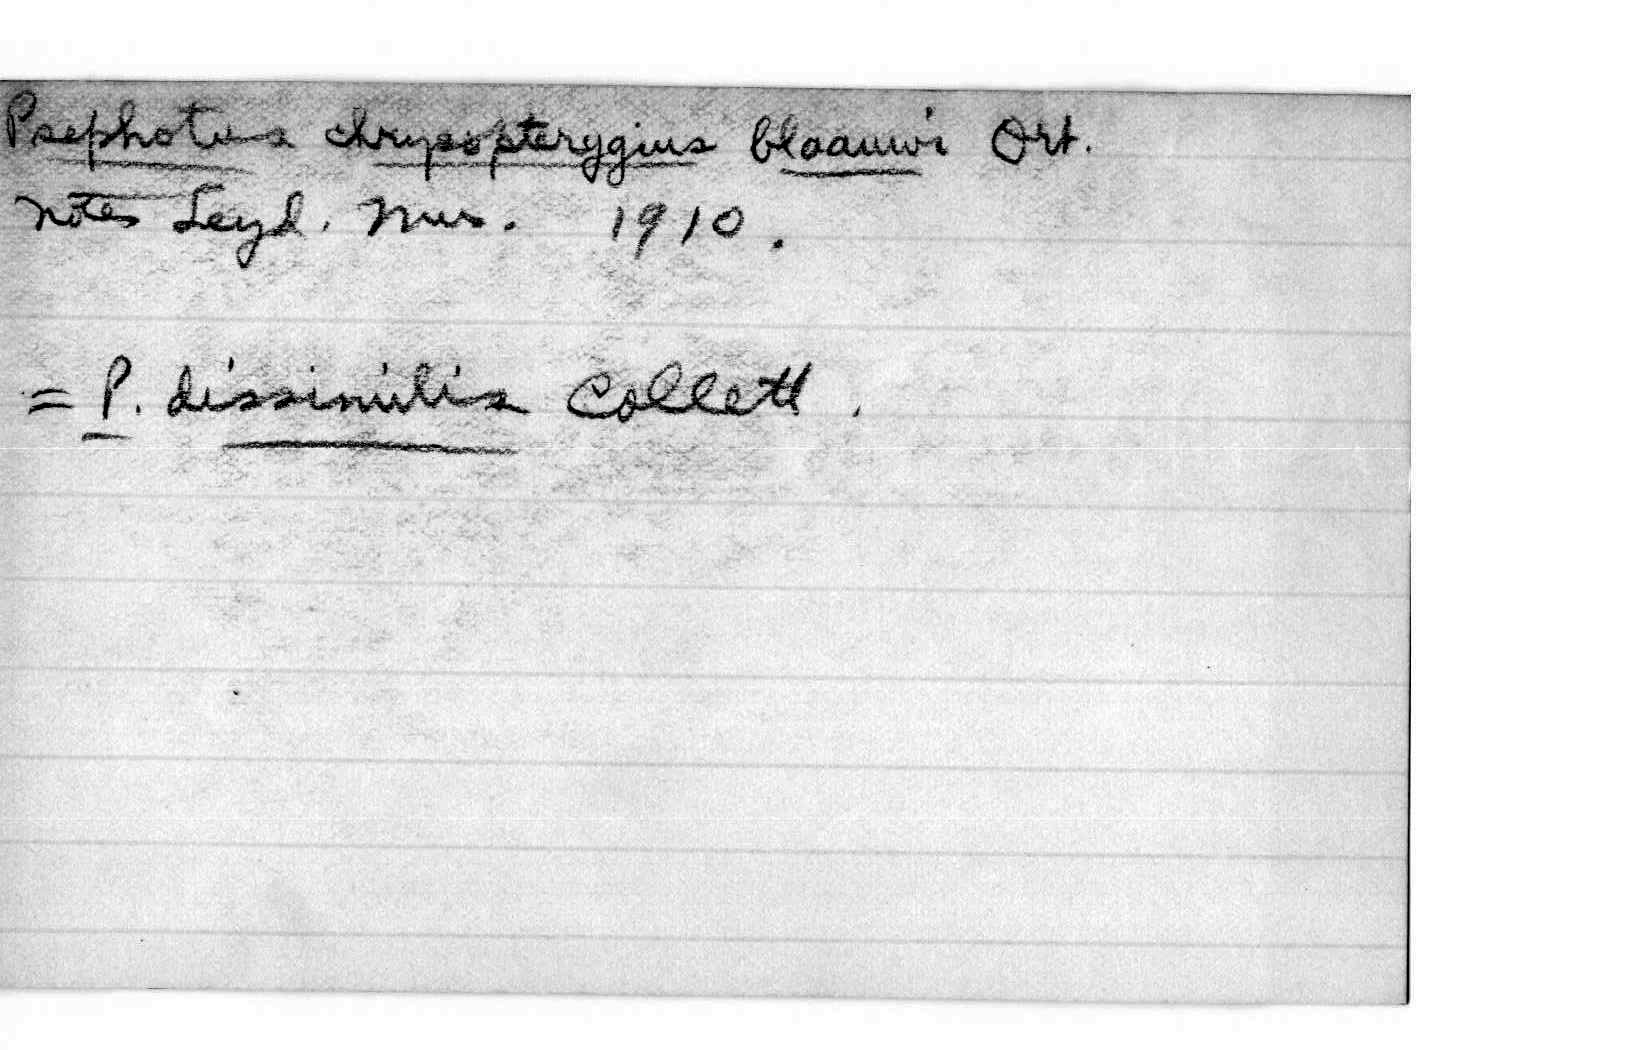 Psephotus chrysopterygius blaauwi Ort.
Notes Leyd. Mus. 1910.
= P. dissimilis Collett.